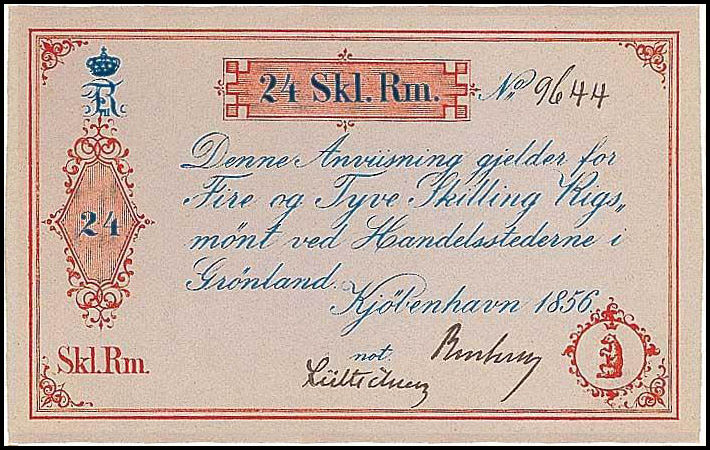 24 Skl. Rm.
No 9644
Denne Anviisning gjelder for
Fire og Tyve Skilling Rigs„
mönt ved Handelsstederne i
Grönland.
Kjöbenhavn 1856
24
not.
Skl. Rm.